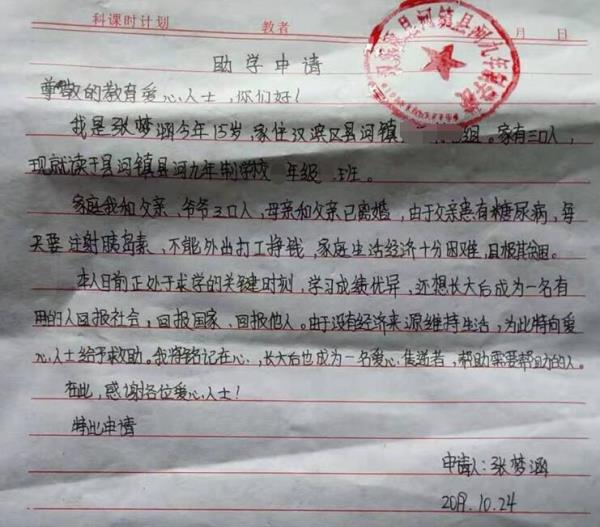 科课时计划 教者 月 日
助学申请
尊敬的教育爱心人士，你们好！
我是张梦涵今年15岁，家住汉滨区县河镇 组。家有三口人，
现就读于县河镇县河九年制学校 年级 班。
家庭我和父亲、爷爷3口人，母亲和父亲已离婚，由于父亲患有糖尿病，每
天要注射胰岛素、不能外出打工挣钱，家庭生活经济十分困难，且极其贫困。
本人目前正处于求学的关键时刻，学习成绩优异，还想长大后成为一名有
用的人回报社会，回报国家、回报他人。由于没有经济来源维持生活，为此特向爱
心人士给予求助。我将铭记在心，长大后也成为一名爱心传递者，帮助需要帮助的人。
在此，感谢各位爱心人士！
特此申请
申请人：张梦涵
2019.10.24